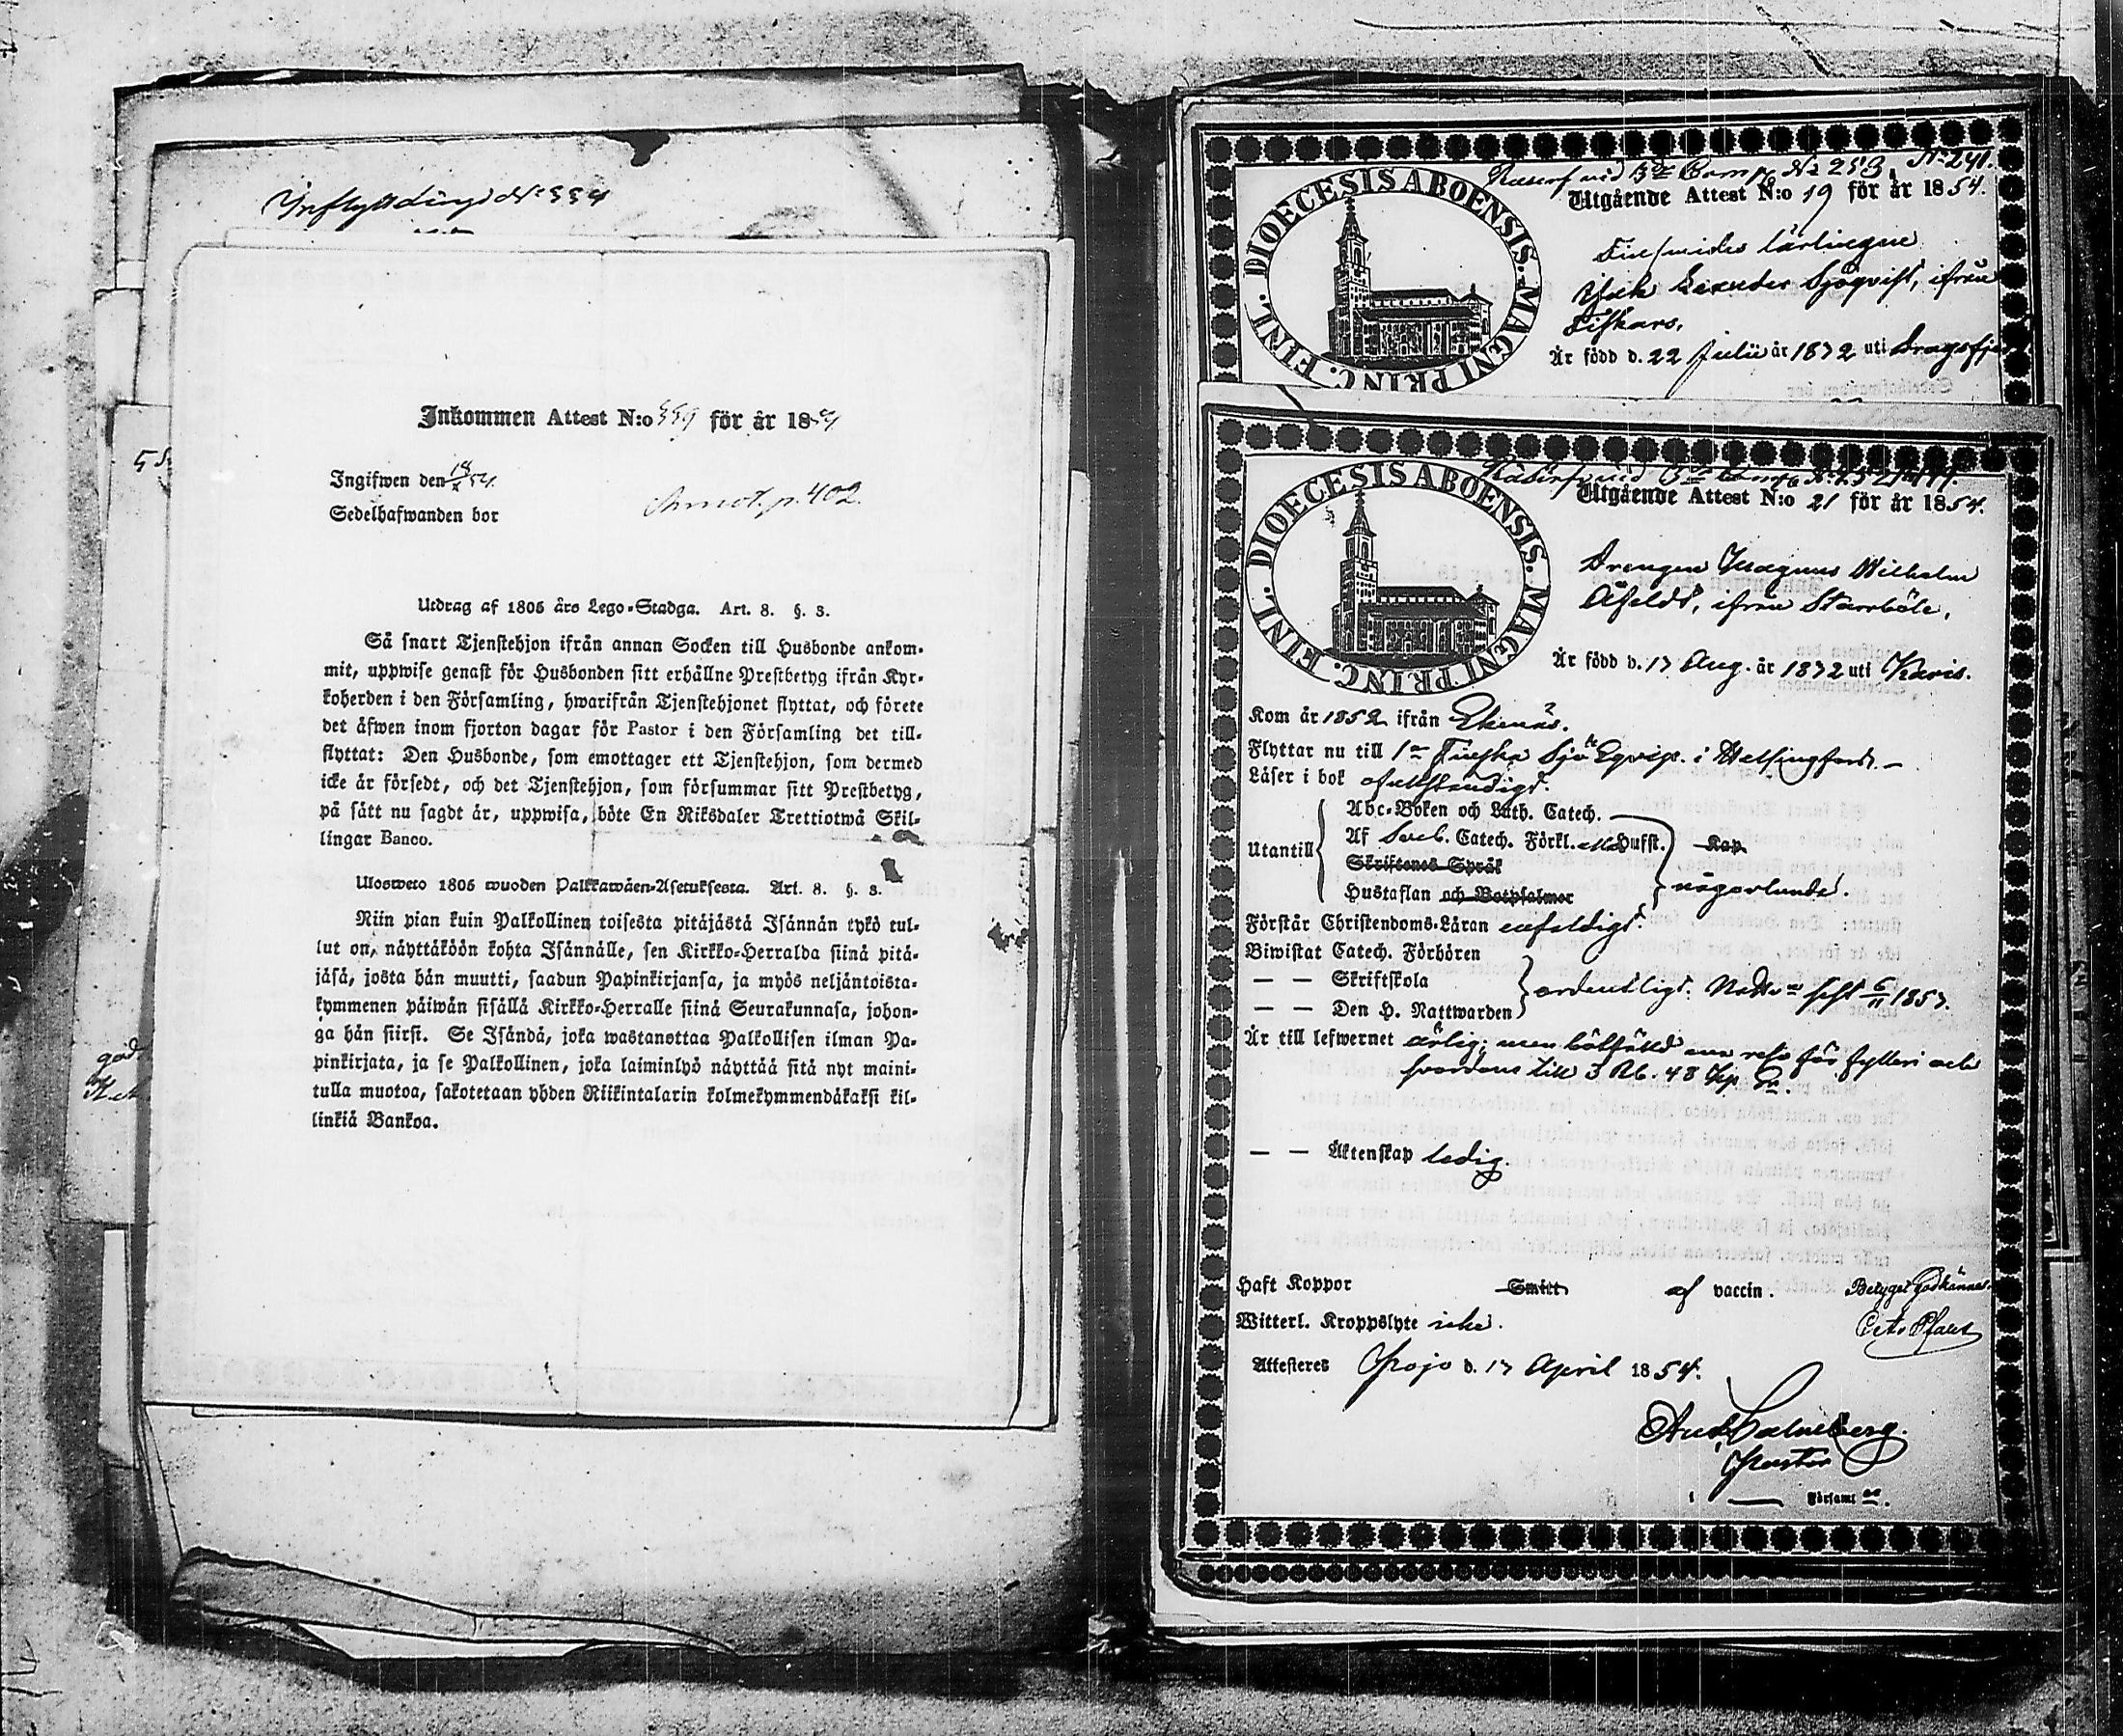 Inflyttnings N:o 334
Inkommen Attest N:o 339 för år 1854
Ingifwen den 18/x 54.
Sedelhafwanden bor
Annot. p. 402.
Utdrag af 1805 års Lego-Stadga. Art. 8. §. 3.
Så snart Tjenstehjon ifrån annan Socken till Husbonde ankom-
mit, uppwise genast för Husbonden sitt erhållne Prestbetyg ifrån Kyr-
koherden i den Församling, hwarifrån Tjenstehjonet flyttat, och förete
det äfwen inom fjorton dagar för Pastor i den Församling det till-
flyttat: Den Husbonde, som emottager ett Tjenstehjon, som dermed
icke är försedt, och det Tjenstehjon, som försummar sitt Prestbetyg,
på sätt nu sagdt är, uppwisa, böte En Riksdaler Trettiotwå Skil-
lingar Banco.
Ulosweto 1805 wuoden Palkkawäen-Asetuksesta. Art. 8. §. 3.
Niin pian kuin Palkollinen toisesta pitäjästä Isännän tykö tul-
lut on, näyttäköön kohta Isännälle, sen Kirkko-Herralda siinä pitä-
jäsä, josta hän muutti, saadun Papinkirjansa, ja myös neljäntoista-
kymmenen päiwän sisällä Kirkko-Herralle siinä Seurakunnasa, johon-
ga hän siirsi. Se Isändä, joka wastanottaa Palkollisen ilman Pa-
pinkirjata, ja se Palkollinen, joka laiminlyö näyttää sitä nyt maini-
tulla muotoa, sakotetaan yhden Riikintalarin kolmekymmendäkaksi kil-
linkiä Bankoa.
N:o 241.
N:o 253,
DIOECESIS ABOENSIS. MAGNI PRINC. FINL.
Utgående Attest N:o 19 för år 1854.
Finsmides lärlingen
Isak Sjöqvist, ifrån
Fiskars,
Är född d. 22 Julii år 1832 uti Dragsfj
DIOECESIS ABOENSIS. MAGNI PRINC. FINL.
Utgående Attest N:o 21 för år 1854.
Drengen Magnus Wilhelm
Åfeldt, ifrån Starrböle,
Är född d. 17 Aug. år 1832 uti Karis.
Kom år 1852 ifrån Ekenäs.
Flyttar nu till 1a Finska Sjö Eqvip. i Helsingfors. –
Läser i bok ofullständigt.
Utantill
Abc-Boken och Luth. Catech.
Af Sveb. Catech. Förkl. Hufst. Kap.
Skriftenes Språk
Hustaflan och Botpsalmer
någorlunda.
Förstår Christendoms-Läran enfaldigt.
Biwistat Catech. Förhören
— — Skriftskola
— — Den H. Nattwarden
ordentligt. Nattv. sist 6/11 1853.
Är till lefwernet ärlig; men bötfälld en resa för fylleri och
svordom till 3 Rb. 48 kop. Sr.
— — Äktenskap ledig.
Haft Koppor Smitt af vaccin. Betyget godkännes.
Witterl. Kroppslyte icke.
Attesteres Pojo d. 17 April 1854.
Pastor
i — Församl